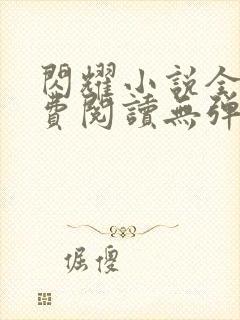 閃耀小說全
費閱讀無彈
倔傻